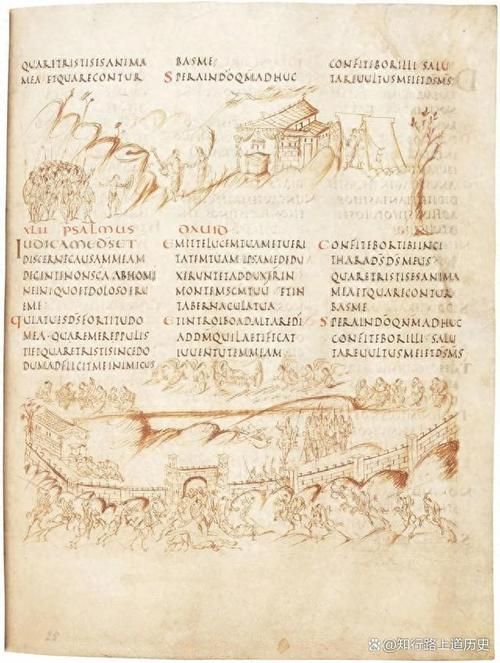 QUARETRISTISESANIMA
MEAETQUARECONTUR
BASME
SPERAINDŌQNMADHUC
CONFITEBORILLI SALU
TAREUULTUSMEIETDSMS
XLII PSALMUS DAVID
IUDICAMEDSET
DISCERNECAUSAMMEAM
DEGENTENONSCA ABHOMI
NEINIQUOETDOLOSOERU
EME
QUIATUESDSFORTITUDO
MEA QUAREMEREPPULIS
TIETQUARETRISTISINCEDO
DUMADFLICITMEINIMICUS
EMITTELUCEMTUAMETUERI
TATEMTUAM IPSAMEDEDU
XERUNTETADDUXERIN
MONTEMSCMTUU ETIN
TABERNACULATUA
ETINTROIBOADALTAREDI
ADDMQUILAETIFICAT
IUUENTUTEMMEAM
CONFITEBORTIBIINCI
THARADSDSMEUS
QUARETRISTISESANIMA
MEAETQUARECONTUR
BASME
SPERAINDŌQNMADHUC
CONFITEBORILLI SALU
TAREUULTUSMEIETDSMS
25
知行路上道历史